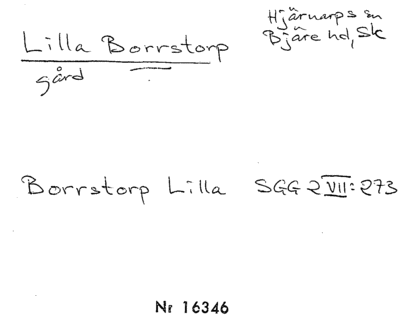 Lilla Borrstorp
gård
Hjärnarps sn
Bjäre hd, Sk
Borrstorp Lilla SGG 2 VII: 273
Nr 16346